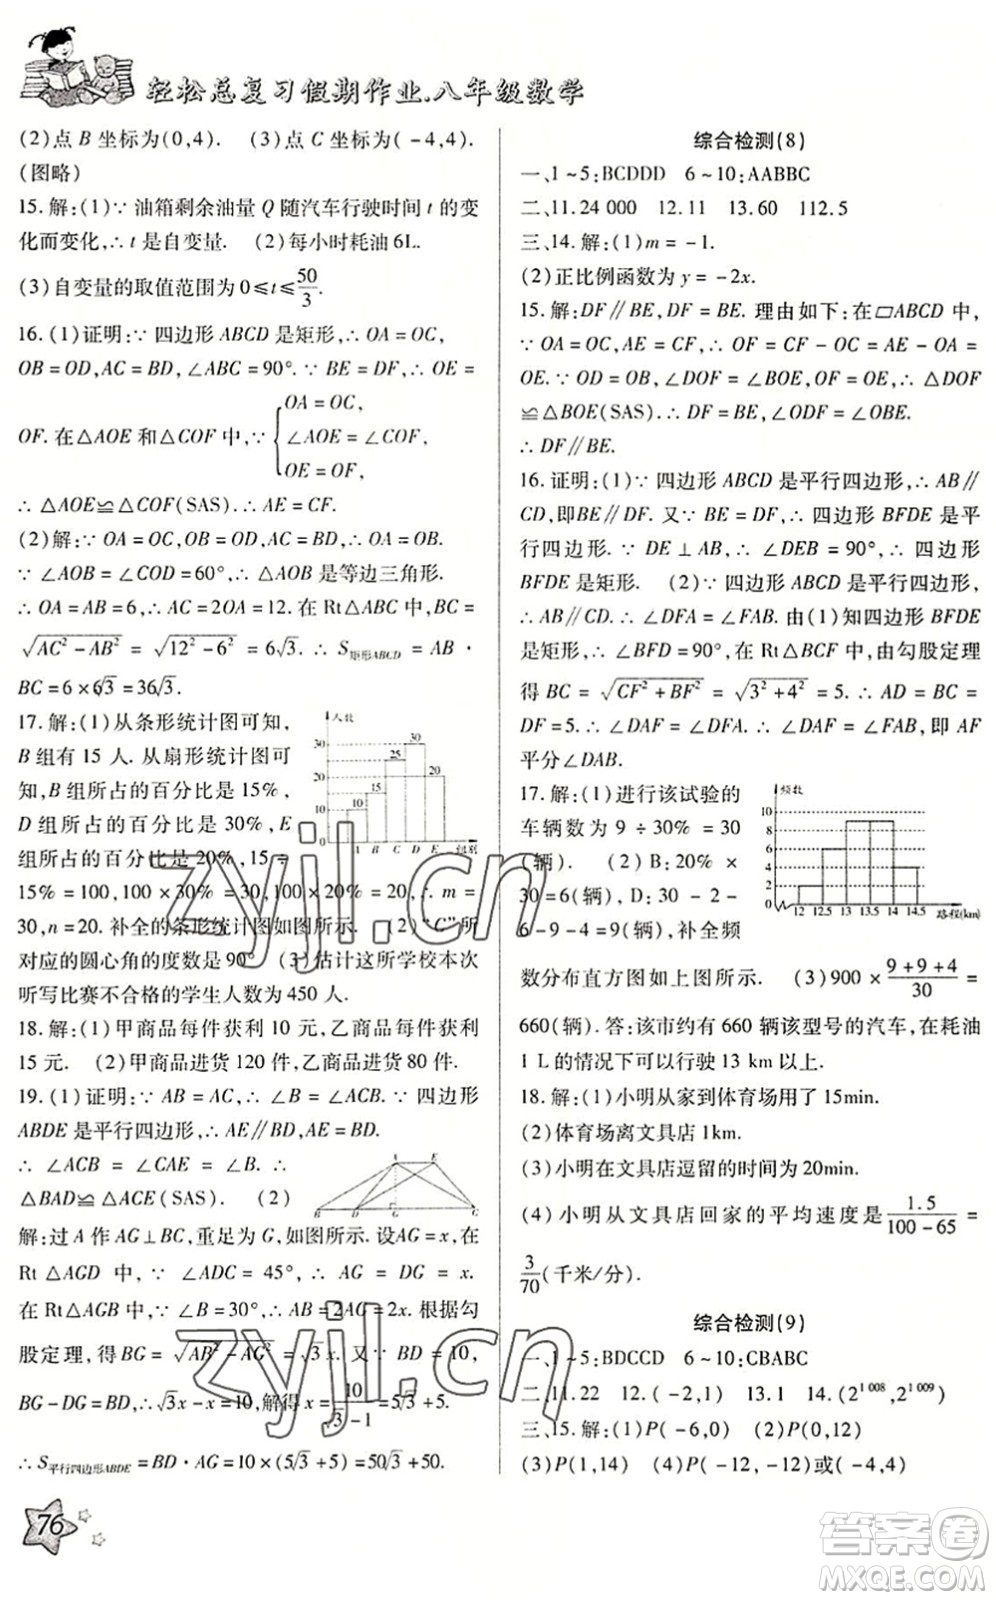 轻松总复习假期作业.八年级数学
(2)点 B 坐标为(0,4). (3)点 C 坐标为(-4,4).
(图略)
15.解:(1)∵ 油箱剩余油量 Q 随汽车行驶时间 t 的变
化而变化,∴ t 是自变量. (2)每小时耗油 6L.
(3)自变量的取值范围为 0≤t≤50/3.
16.(1)证明:∵ 四边形 ABCD 是矩形,∴ OA=OC,
OB=OD,AC=BD,∠ABC=90°.∵ BE=DF,∴ OE=
OF.在△AOE 和△COF 中,∵ { OA=OC,
∠AOE=∠COF,
OE=OF,
∴ △AOE≌△COF(SAS).∴ AE=CF.
(2)解:∵ OA=OC,OB=OD,AC=BD,∴ OA=OB.
∵ ∠AOB=∠COD=60°,∴ △AOB 是等边三角形.
∴ OA=AB=6,∴ AC=2OA=12.在 Rt△ABC 中,BC=
√(AC²-AB²)=√(12²-6²)=6√3.∴ S矩形ABCD=AB·
BC=6×6√3=36√3.
17.解:(1)从条形统计图可知,
B 组有 15 人.从扇形统计图可
知,B 组所占的百分比是 15%,
D 组所占的百分比是 30%,E
组所占的百分比是 20%,15÷
15%=100,100×30%=30,100×20%=20,∴ m=
30,n=20.补全的条形统计图如图所示. (2)“C”所
对应的圆心角的度数是 90° (3)估计这所学校本次
听写比赛不合格的学生人数为 450 人.
人数
30
20
10
0
10
15
25
30
20
A B C D E 组别
18.解:(1)甲商品每件获利 10 元,乙商品每件获利
15 元. (2)甲商品进货 120 件,乙商品进货 80 件.
19.(1)证明:∵ AB=AC,∴ ∠B=∠ACB.∵ 四边形
ABDE 是平行四边形,∴ AE∥BD,AE=BD.
∴ ∠ACB=∠CAE=∠B.∴
△BAD≌△ACE(SAS). (2)
A E
B D G C
解:过 A 作 AG⊥BC,垂足为 G,如图所示.设AG=x,在
Rt△AGD 中,∵ ∠ADC=45°,∴ AG=DG=x.
在 Rt△AGB 中,∵ ∠B=30°,∴ AB=2AG=2x.根据勾
股定理,得 BG=√(AB²-AG²)=√3x.又∵ BD=10,
BG-DG=BD,∴ √3x-x=10,解得 x=10/(√3-1)=5√3+5.
∴ S平行四边形ABDE=BD·AG=10×(5√3+5)=50√3+50.
76
综合检测(8)
一、1~5:BCDDD 6~10:AABBC
二、11.24 000 12.11 13.60 112.5
三、14.解:(1)m=-1.
(2)正比例函数为 y=-2x.
15.解:DF∥BE,DF=BE.理由如下:在▱ABCD 中,
∵ OA=OC,AE=CF,∴ OF=CF-OC=AE-OA=
OE.∵ OD=OB,∠DOF=∠BOE,OF=OE,∴ △DOF
≌△BOE(SAS).∴ DF=BE,∠ODF=∠OBE.
∴ DF∥BE.
16.证明:(1)∵ 四边形 ABCD 是平行四边形,∴ AB∥
CD,即BE∥DF.又∵ BE=DF,∴ 四边形 BFDE 是平
行四边形.∵ DE⊥AB,∴ ∠DEB=90°,∴ 四边形
BFDE 是矩形. (2)∵ 四边形 ABCD 是平行四边形,
∴ AB∥CD.∴ ∠DFA=∠FAB.由(1)知四边形 BFDE
是矩形,∴ ∠BFD=90°,在 Rt△BCF 中,由勾股定理
得 BC=√(CF²+BF²)=√(3²+4²)=5.∴ AD=BC=
DF=5.∴ ∠DAF=∠DFA,∴ ∠DAF=∠FAB,即 AF
平分∠DAB.
17.解:(1)进行该试验的
车辆数为 9÷30%=30
(辆). (2)B:20%×
30=6(辆),D:30-2-
6-9-4=9(辆),补全频
频数
10
8
6
4
2
0
12 12.5 13 13.5 14 14.5 路程(km)
数分布直方图如上图所示. (3)900×(9+9+4)/30=
660(辆).答:该市约有 660 辆该型号的汽车,在耗油
1 L 的情况下可以行驶 13 km 以上.
18.解:(1)小明从家到体育场用了 15min.
(2)体育场离文具店 1km.
(3)小明在文具店逗留的时间为 20min.
(4)小明从文具店回家的平均速度是1.5/(100-65)=
3/70(千米/分).
综合检测(9)
一、1~5:BDCCD 6~10:CBABC
二、11.22 12.(-2,1) 13.1 14.(2^1 008,2^1 009)
三、15.解:(1)P(-6,0) (2)P(0,12)
(3)P(1,14) (4)P(-12,-12)或(-4,4)
zyjl.cn
zyjl.cn
答案圈
MXQE.COM